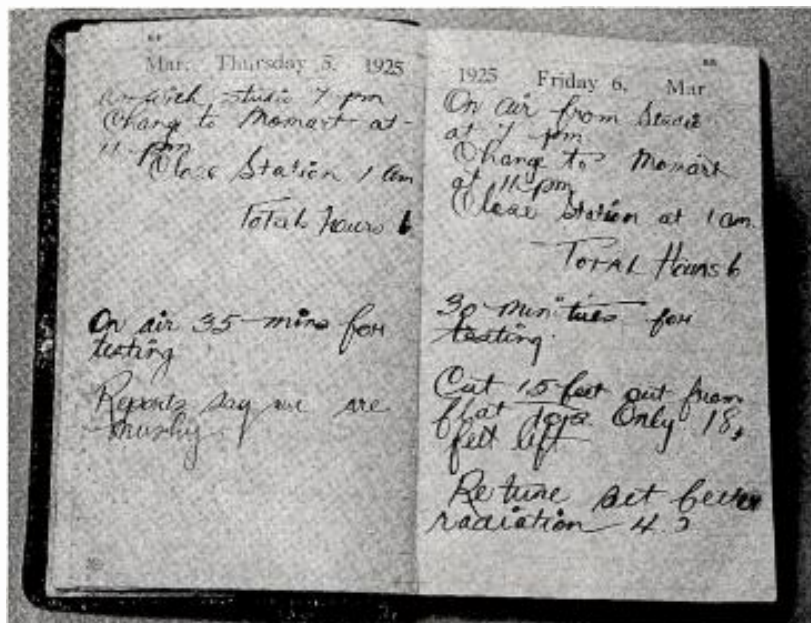 Mar. Thursday 5, 1925
with studio 7 pm
Change to Momart at
11 pm
Close Station 1 am
Total hours 6
On air 35 mins for
testing
Reports say we are
mushy
1925 Friday 6, Mar
On air from Studio
at 7 pm
Change to Momart
at 11 pm
Close Station at 1 am.
Total Hours 6
30 minitues for
testing.
Cut 15 feet out from
flat top. Only 18
feet left
Retune set better
radiation 4.2